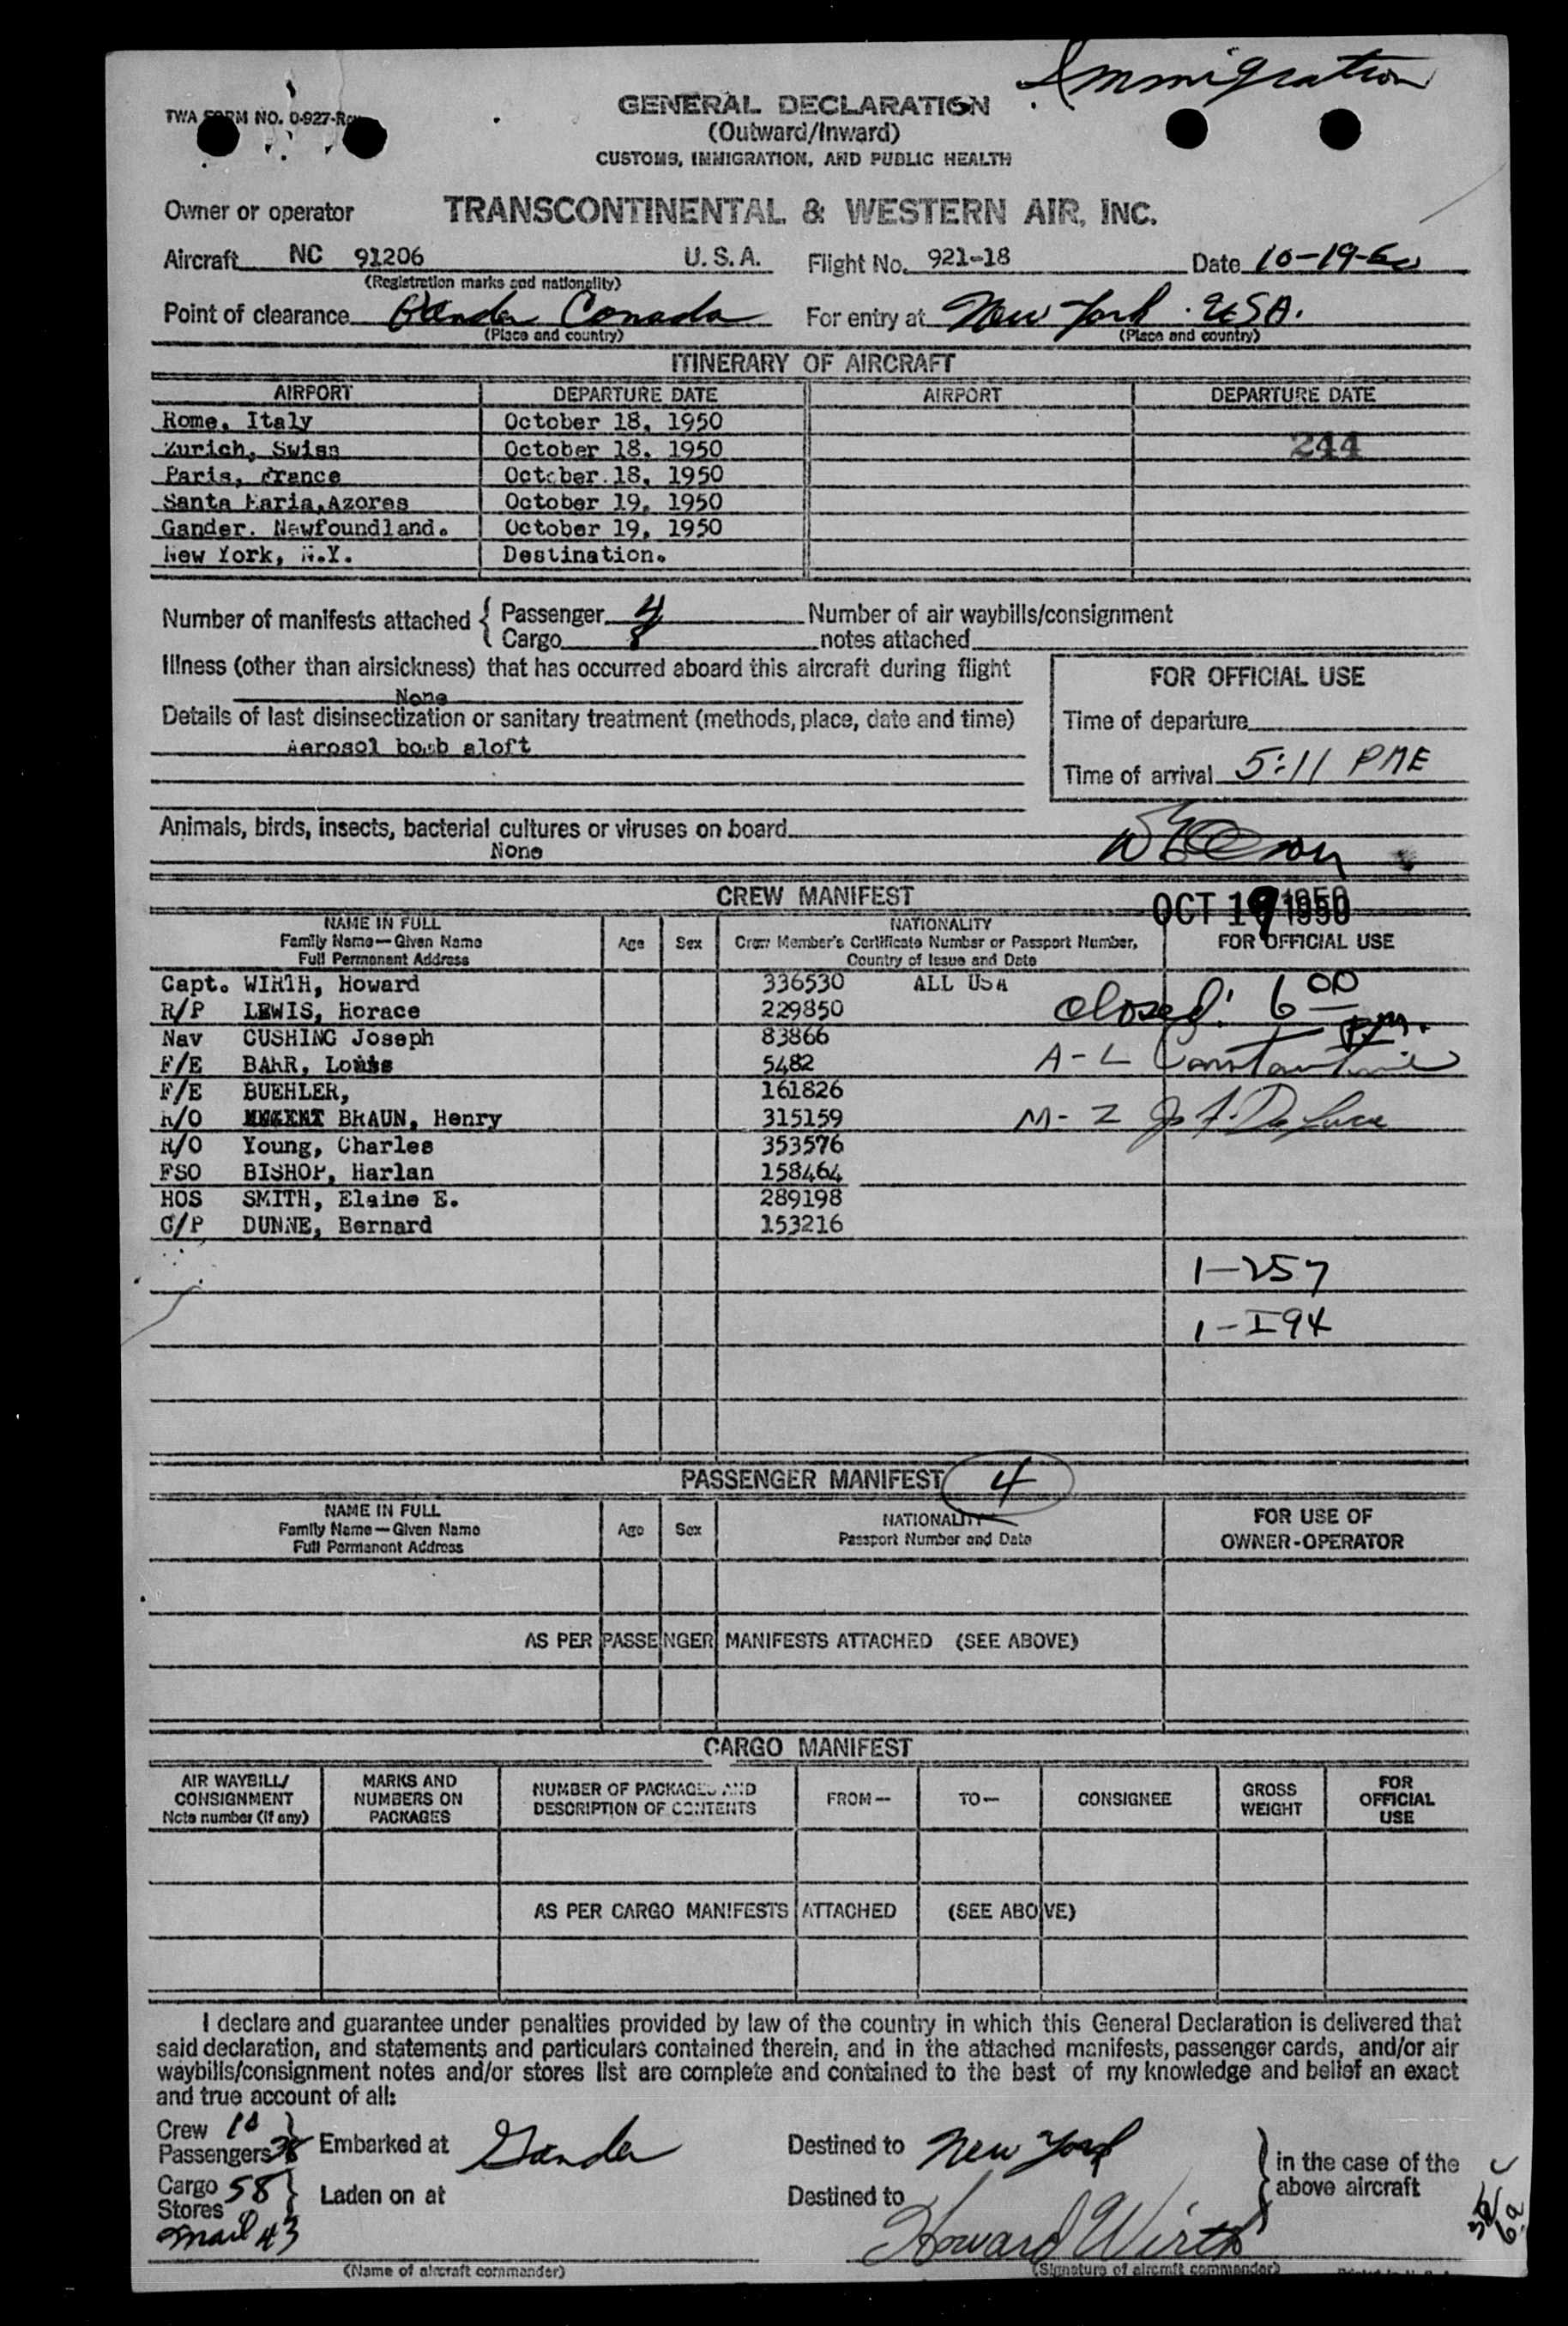 Immigration
TWA FORM NO. 0-927-Rev
GENERAL DECLARATION
(Outward/Inward)
CUSTOMS, IMMIGRATION, AND PUBLIC HEALTH
Owner or operator TRANSCONTINENTAL & WESTERN AIR, INC.
Aircraft NC 91206 U.S.A. Flight No. 921-18 Date 10-19-50
(Registration marks and nationality)
Point of clearance Gander Canada For entry at New York USA.
(Place and country) (Place and country)
ITINERARY OF AIRCRAFT
AIRPORT DEPARTURE DATE AIRPORT DEPARTURE DATE
Rome, Italy October 18, 1950
Zurich, Swiss October 18, 1950 244
Paris, France October 18, 1950
Santa Maria, Azores October 19, 1950
Gander. Newfoundland. October 19, 1950
New York, N.Y. Destination.
Number of manifests attached { Passenger 4 Number of air waybills/consignment
Cargo 8 notes attached
Illness (other than airsickness) that has occurred aboard this aircraft during flight
None
FOR OFFICIAL USE
Details of last disinsectization or sanitary treatment (methods, place, date and time)
Aerosol bomb aloft
Time of departure
Time of arrival 5:11 PME
Animals, birds, insects, bacterial cultures or viruses on board
None
CREW MANIFEST
OCT 19 1950
NAME IN FULL
Family Name—Given Name
Full Permanent Address
Age Sex
NATIONALITY
Crew Member's Certificate Number or Passport Number,
Country of Issue and Date
FOR OFFICIAL USE
Capt. WIRTH, Howard 336530 ALL USA
R/P LEWIS, Horace 229850 closed: 6 00 P.M.
Nav CUSHING Joseph 83866
F/E BAHR, Louis 5482 A-L Constantine
F/E BUEHLER, 161826
R/O BRAUN, Henry 315159 M-Z
R/O Young, Charles 353576
FSO BISHOP, Harlan 158464
HOS SMITH, Elaine E. 289198
C/P DUNNE, Bernard 153216
1-257
1-I94
PASSENGER MANIFEST 4
NAME IN FULL
Family Name—Given Name
Full Permanent Address
Age Sex
NATIONALITY
Passport Number and Date
FOR USE OF
OWNER-OPERATOR
AS PER PASSENGER MANIFESTS ATTACHED (SEE ABOVE)
CARGO MANIFEST
AIR WAYBILL/
CONSIGNMENT
Note number (if any)
MARKS AND
NUMBERS ON
PACKAGES
NUMBER OF PACKAGES AND
DESCRIPTION OF CONTENTS
FROM— TO— CONSIGNEE
GROSS
WEIGHT
FOR
OFFICIAL
USE
AS PER CARGO MANIFESTS ATTACHED (SEE ABOVE)
I declare and guarantee under penalties provided by law of the country in which this General Declaration is delivered that
said declaration, and statements and particulars contained therein, and in the attached manifests, passenger cards, and/or air
waybills/consignment notes and/or stores list are complete and contained to the best of my knowledge and belief an exact
and true account of all:
Crew 10
Passengers 38 } Embarked at Gander Destined to New York } in the case of the
Cargo 58 above aircraft
Stores } Laden on at Destined to
mail 43
Howard Wirth
(Name of aircraft commander) (Signature of aircraft commander)